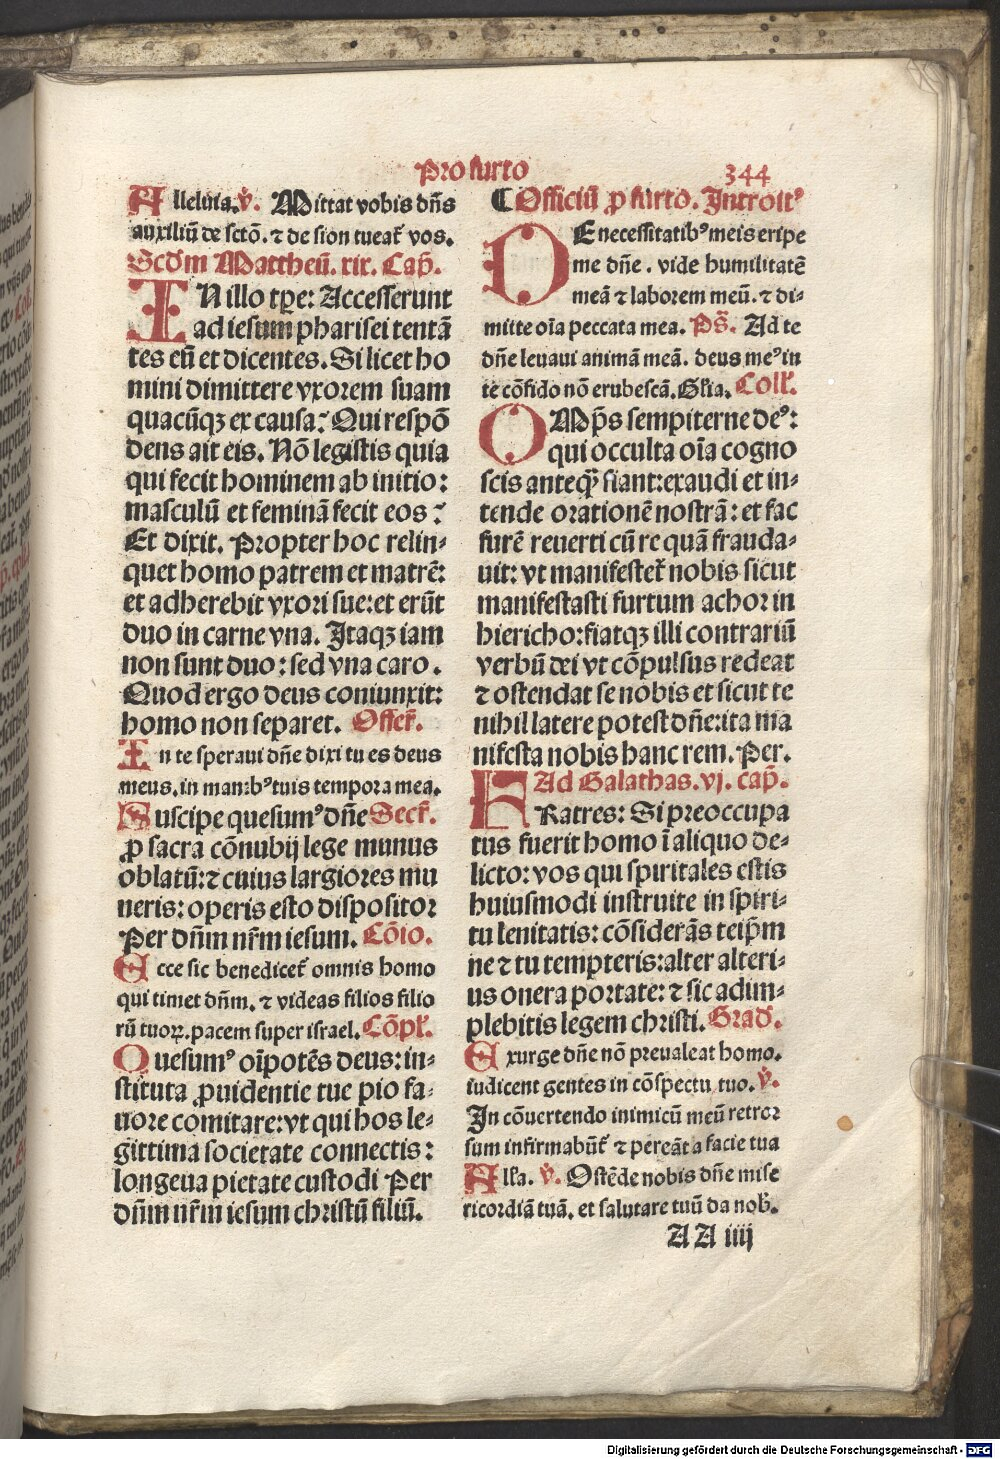 Pro furto
344
Alleluia. v̄. Mittat vobis dñs
auxiliū de sctō. ⁊ de sion tueat᷑ vos.
Scd̄m Mattheū. xix. Cap̄.
IN illo tp̄e: Accesserunt
ad iesum pharisei tentā
tes eū et dicentes. Si licet ho
mini dimittere vxorem suam
quacūqꝫ ex causa? Qui respō
dens ait eis. Nō legistis quia
qui fecit hominem ab initio:
masculū et feminā fecit eos?
Et dixit. Propter hoc relin-
quet homo patrem et matrē:
et adherebit vxori sue: et erūt
duo in carne vna. Itaqꝫ iam
non sunt duo: sed vna caro.
Quod ergo deus coniunxit:
homo non separet. Offer̄.
In te speraui dñe dixi tu es deus
meus, in manibꝰ tuis tempora mea.
Suscipe quesumꝰ dñe Secr̄.
ꝓ sacra cōnubij lege munus
oblatū: ⁊ cuius largiores mu
neris: operis esto dispositor
Per dñm nr̄m iesum. Cōio.
Ecce sic benedicet᷑ omnis homo
qui timet dñm. ⁊ videas filios filio
rū tuoꝝ. pacem super israel. Cōpl̄.
Quesumꝰ oīpotēs deus: in-
stituta ꝓuidentie tue pio fa-
uore comitare: vt qui hos le-
gittima societate connectis:
longeua pietate custodi Per
dñm nr̄m iesum christū filiū.
¶ Officiū ꝓ furto. Introitꝰ
DE necessitatibꝰ meis eripe
me dñe. vide humilitatē
meā ⁊ laborem meū. ⁊ di-
mitte oīa peccata mea. Ps̄. Ad te
dñe leuaui animā meā. deus meꝰ in
te cōfido nō erubescā. Gl̄ia. Coll̄.
OMp̄s sempiterne deꝰ:
qui occulta oīa cogno
scis anteqꝫ̄ fiant: exaudi et in-
tende orationē nostrā: et fac
furē reuerti cū re quā frauda-
uit: vt manifestet᷑ nobis sicut
manifestasti furtum achor in
hiericho: fiatqꝫ illi contrariū
verbū dei vt cōpulsus redeat
⁊ ostendat se nobis et sicut te
nihil latere potest dñe: ita ma
nifesta nobis hanc rem. Per.
Ad Galathas. vj. cap̄.
FRatres: Si preoccupa
tus fuerit homo ī aliquo de-
licto: vos qui spiritales estis
huiusmodi instruite in spiri-
tu lenitatis: cōsiderās teip̄m
ne ⁊ tu tempteris: alter alteri-
us onera portate: ⁊ sic adim-
plebitis legem christi. Grad̄.
Exurge dñe nō preualeat homo.
iudicent gentes in cōspectu tuo. v̄.
In cōuertendo inimicū meū retror
sum infirmabūt᷑ ⁊ pereāt a facie tua
All̄a. v̄. Ostēde nobis dñe mise
ricordiā tuā. et salutare tuū da nob̄.
AA iiij
Digitalisierung gefördert durch die Deutsche Forschungsgemeinschaft - DFG